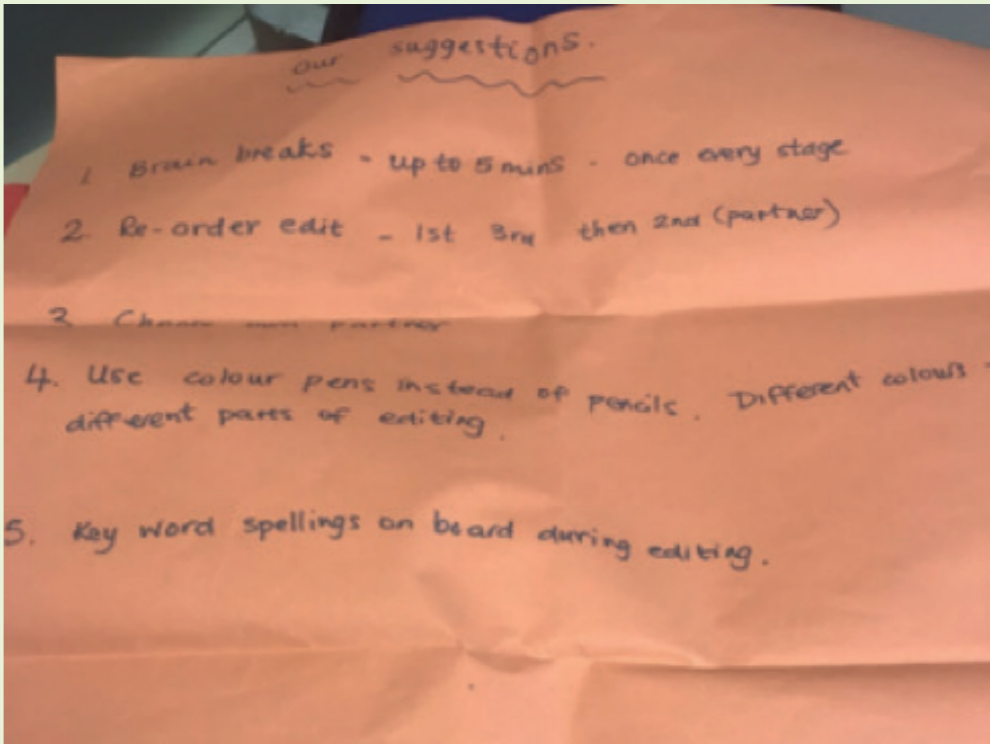 our suggestions.
1 Brain breaks - up to 5 mins - once every stage
2 Re-order edit - 1st 3rd then 2nd (partner)
3 Choose own partner
4. Use colour pens instead of pencils. Different colours -
different parts of editing.
5. Key word spellings on board during editing.